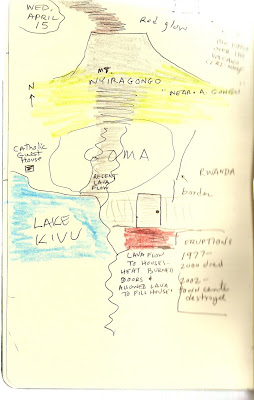 WED,
APRIL
15
Red glow
MT
NYIRAGONGO
N
NEAR A GOMA
CATHOLIC
GUEST
HOUSE
GOMA
RECENT
LAVA
FLOW
RWANDA
border
LAKE
KIVU
LAVA FLOW
TO HOUSES-
HEAT BURNED
DOORS &
ALLOWED LAVA
TO FILL HOUSES
ERUPTIONS
1977-
2000 died
2002-
town center
destroyed